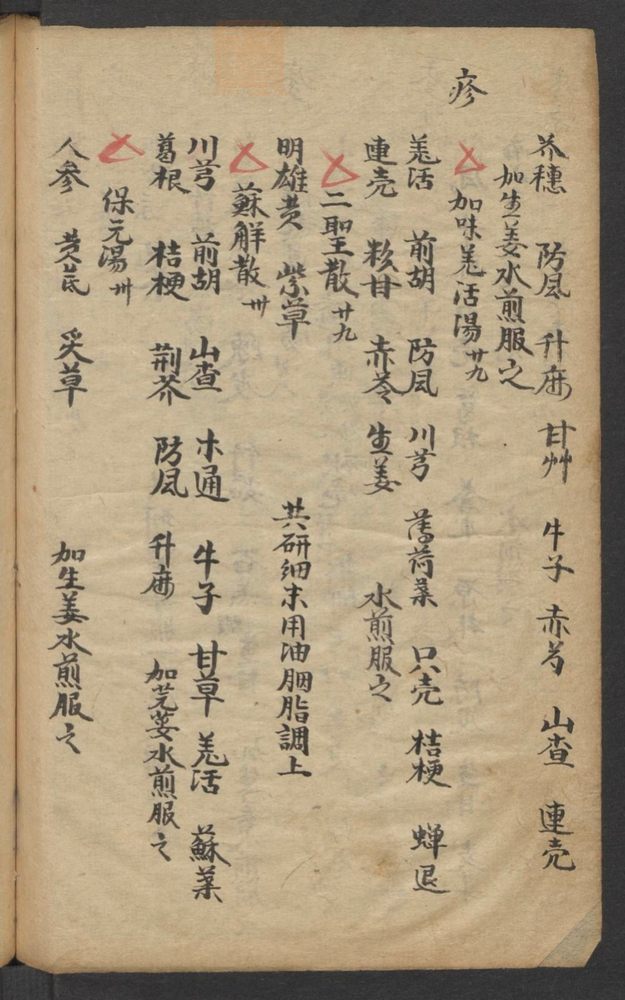 疹
芥穗 防风 升麻 甘艸 牛子 赤芍 山查 連壳
加生姜水煎服之
加味羗活湯 廿九
羗活 前胡 防风 川芎 薄荷葉 只壳 桔梗 蝉退
連壳 粉甘 赤苓 生姜 水煎服之
二聖散 廿九
明雄黄 紫草 共研细末用油胭脂調上
蘇解散 卅
川芎 前胡 山查 木通 牛子 甘草 羗活 蘇葉
葛根 桔梗 荆芥 防风 升麻 加芫荽水煎服之
保元湯 卅
人参 黄芪 炙草 加生姜水煎服之